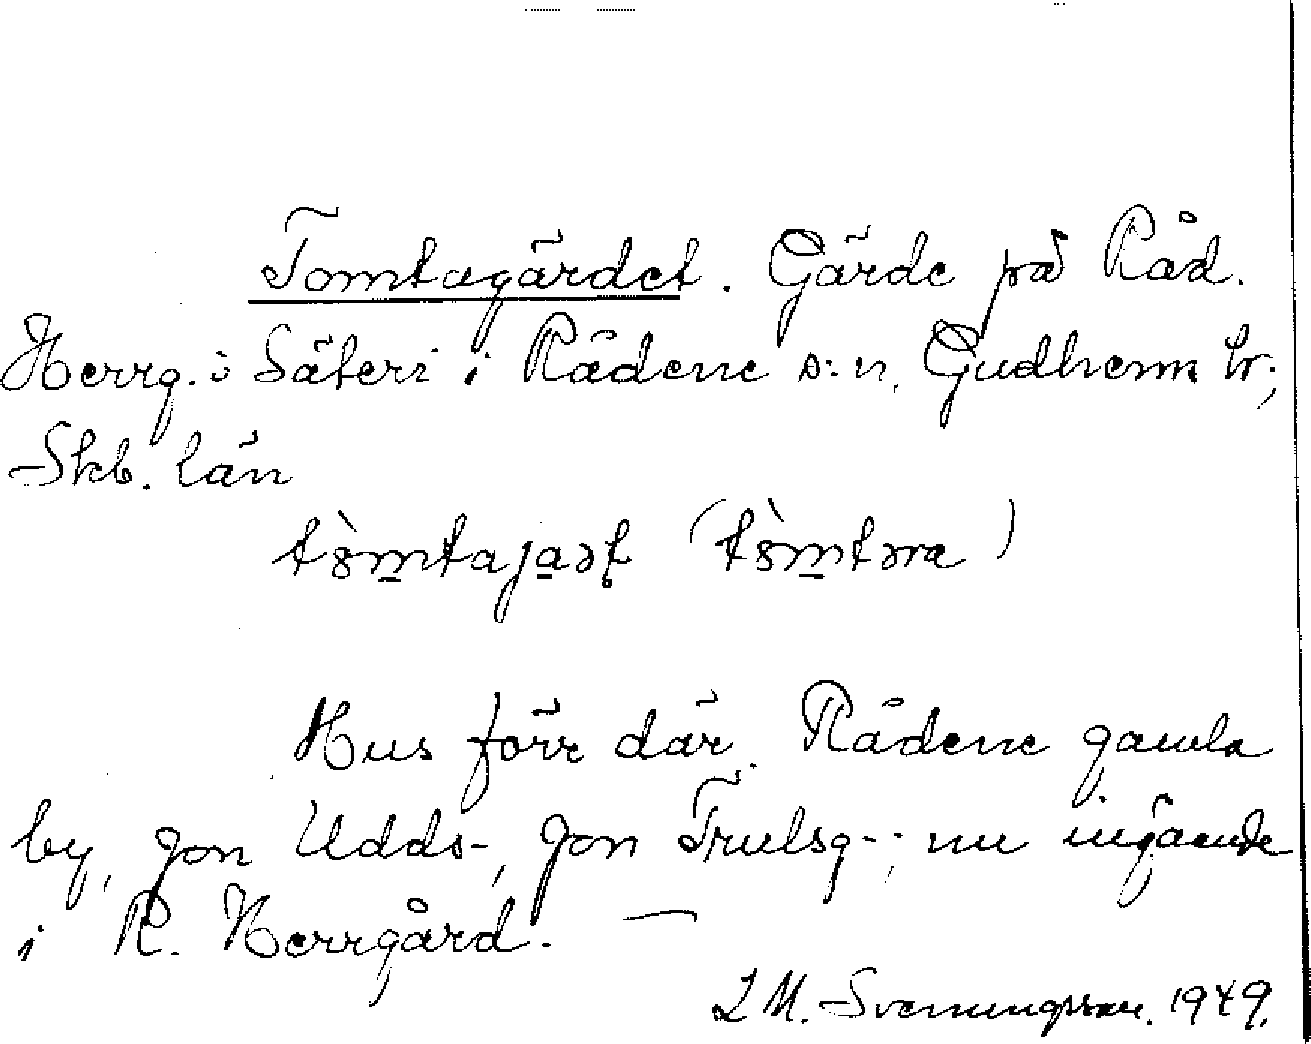 Tomtagärdet. Gärde på Råd.
Herrg. o Säteri i Rådene s:n, Gudhems hr;
Skb. län
tòmtajaət (tòmtəra)
Hus förr där. Rådene gamla
by, Jon Udds-, Jon Trulsg-; nu ingående
i R. Herrgård. —
L M. Svenungsson. 1949.